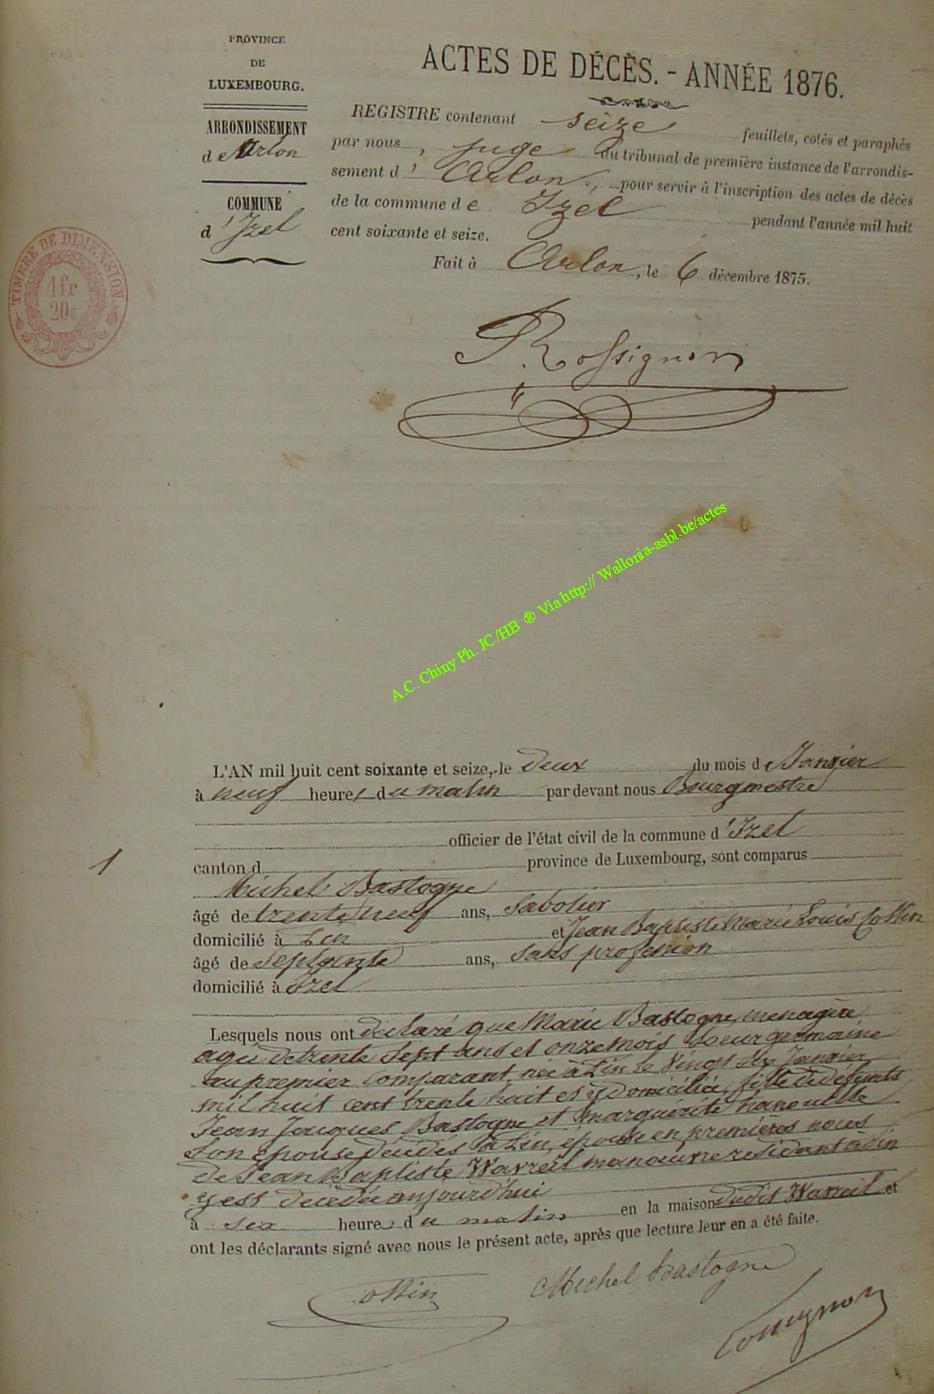 PROVINCE
DE
LUXEMBOURG.
ARRONDISSEMENT
d'Arlon
COMMUNE
d'Izel
TIMBRE DE DIMENSION.
1 fr
20c
ACTES DE DÉCÈS. - ANNÉE 1876.
REGISTRE contenant seize feuillets, cotés et paraphés
par nous, juge du tribunal de première instance de l'arrondis-
sement d'Arlon, pour servir à l'inscription des actes de décès
de la commune de Izel pendant l'année mil huit
cent soixante et seize.
Fait à Arlon, le 6 décembre 1875.
Rossignon
A.C. Chiny Ph. JC/HB ® Via http:// Wallonia-asbl.be/actes
1
L'AN mil huit cent soixante et seize, le deux du mois de Janvier
à neuf heures du matin pardevant nous Bourgmestre
officier de l'état civil de la commune d'Izel
canton d province de Luxembourg, sont comparus
Michel Bastogne
âgé de trente neuf ans, Sabotier
domicilié à et Jean Baptiste Marie Louis Cottin
âgé de Septante ans, sans profession
domicilié à Izel
Lesquels nous ont déclaré que Marie Bastogne, menagère
agée de trente sept ans et onze mois Soeur germaine
au premier comparant, née à le Vingt Janvier
mil huit cent trente huit et y domiciliée, fille de défunts
Jean Jacques Bastogne et Marguerite
son épouse décédés à épouse en premières noces
de Jean Baptiste Warzeil manoeuvre résidant à
y est décédée aujourd'hui
à six heures du matin en la maison dudit Warzeil et
ont les déclarants signé avec nous le présent acte, après que lecture leur en a été faite.
Cottin Michel Bastogne